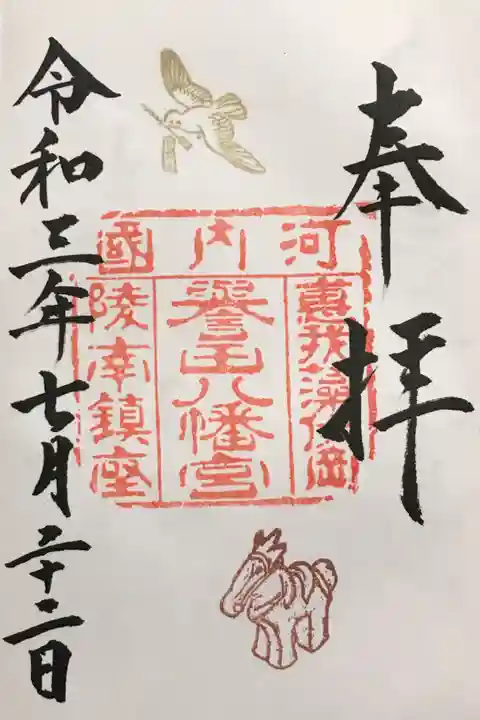 奉拝
河内國
惠我藻伏岡
譽田八幡宮
陵南鎮座
令和三年七月二十二日